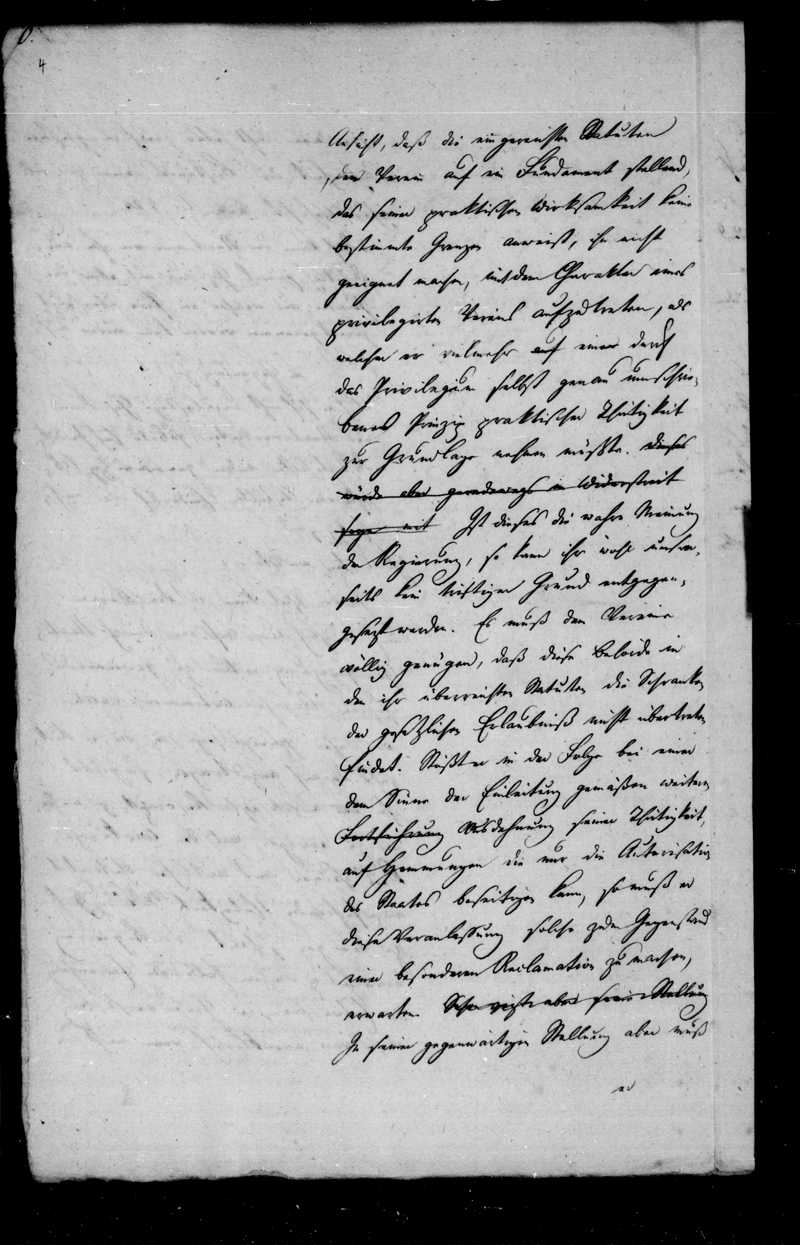 4
Ansicht, daß die eingereichten Statuten
den Verein auf ein Fundament stellend,
das seiner praktischen Wirksamkeit keine
bestimmte Grenzen anweist, ihn nicht
geeignet machen, mit dem Charakter eines
privilegirten Vereins aufzutreten, als
welcher er vielmehr auf einen durch
das Privilegium selbst genau umschrie-
benes Prinzip praktischer Thätigkeit
zur Grundlage nehmen müßte. Dieses
würde aber geradewegs in Widerstreit
seyn mit Ist dieses die wahre Meinung
der Regierung, so kann ihr wohl unsrer-
seits kein triftiger Grund entgegen-
gesetzt werden. Es muß dem Vereine
völlig genügen, daß diese Behörde in
den ihr überreichten Statuten die Schranken
der gesetzlichen Erlaubniß nicht übertreten
findet. Stößt er in der Folge bei einer
dem Sinne der Einleitung gemäßen weitern
Fortführung Ausdehnung seiner Thätigkeit,
auf Hemmungen die nur die Autorisation
des Staates beseitigen kann, so muß er
diese Veranlassung solche zum Gegenstand
einer besonderen Reclamation zu machen,
erwarten. aber seine Stellung
In seiner gegenwärtigen Stellung aber muß
er